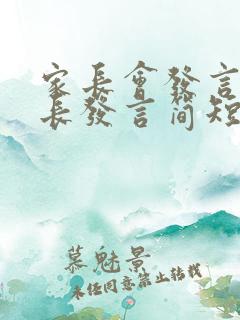 家長會發言
長發言简短
慕魅景
未任同意禁止转载